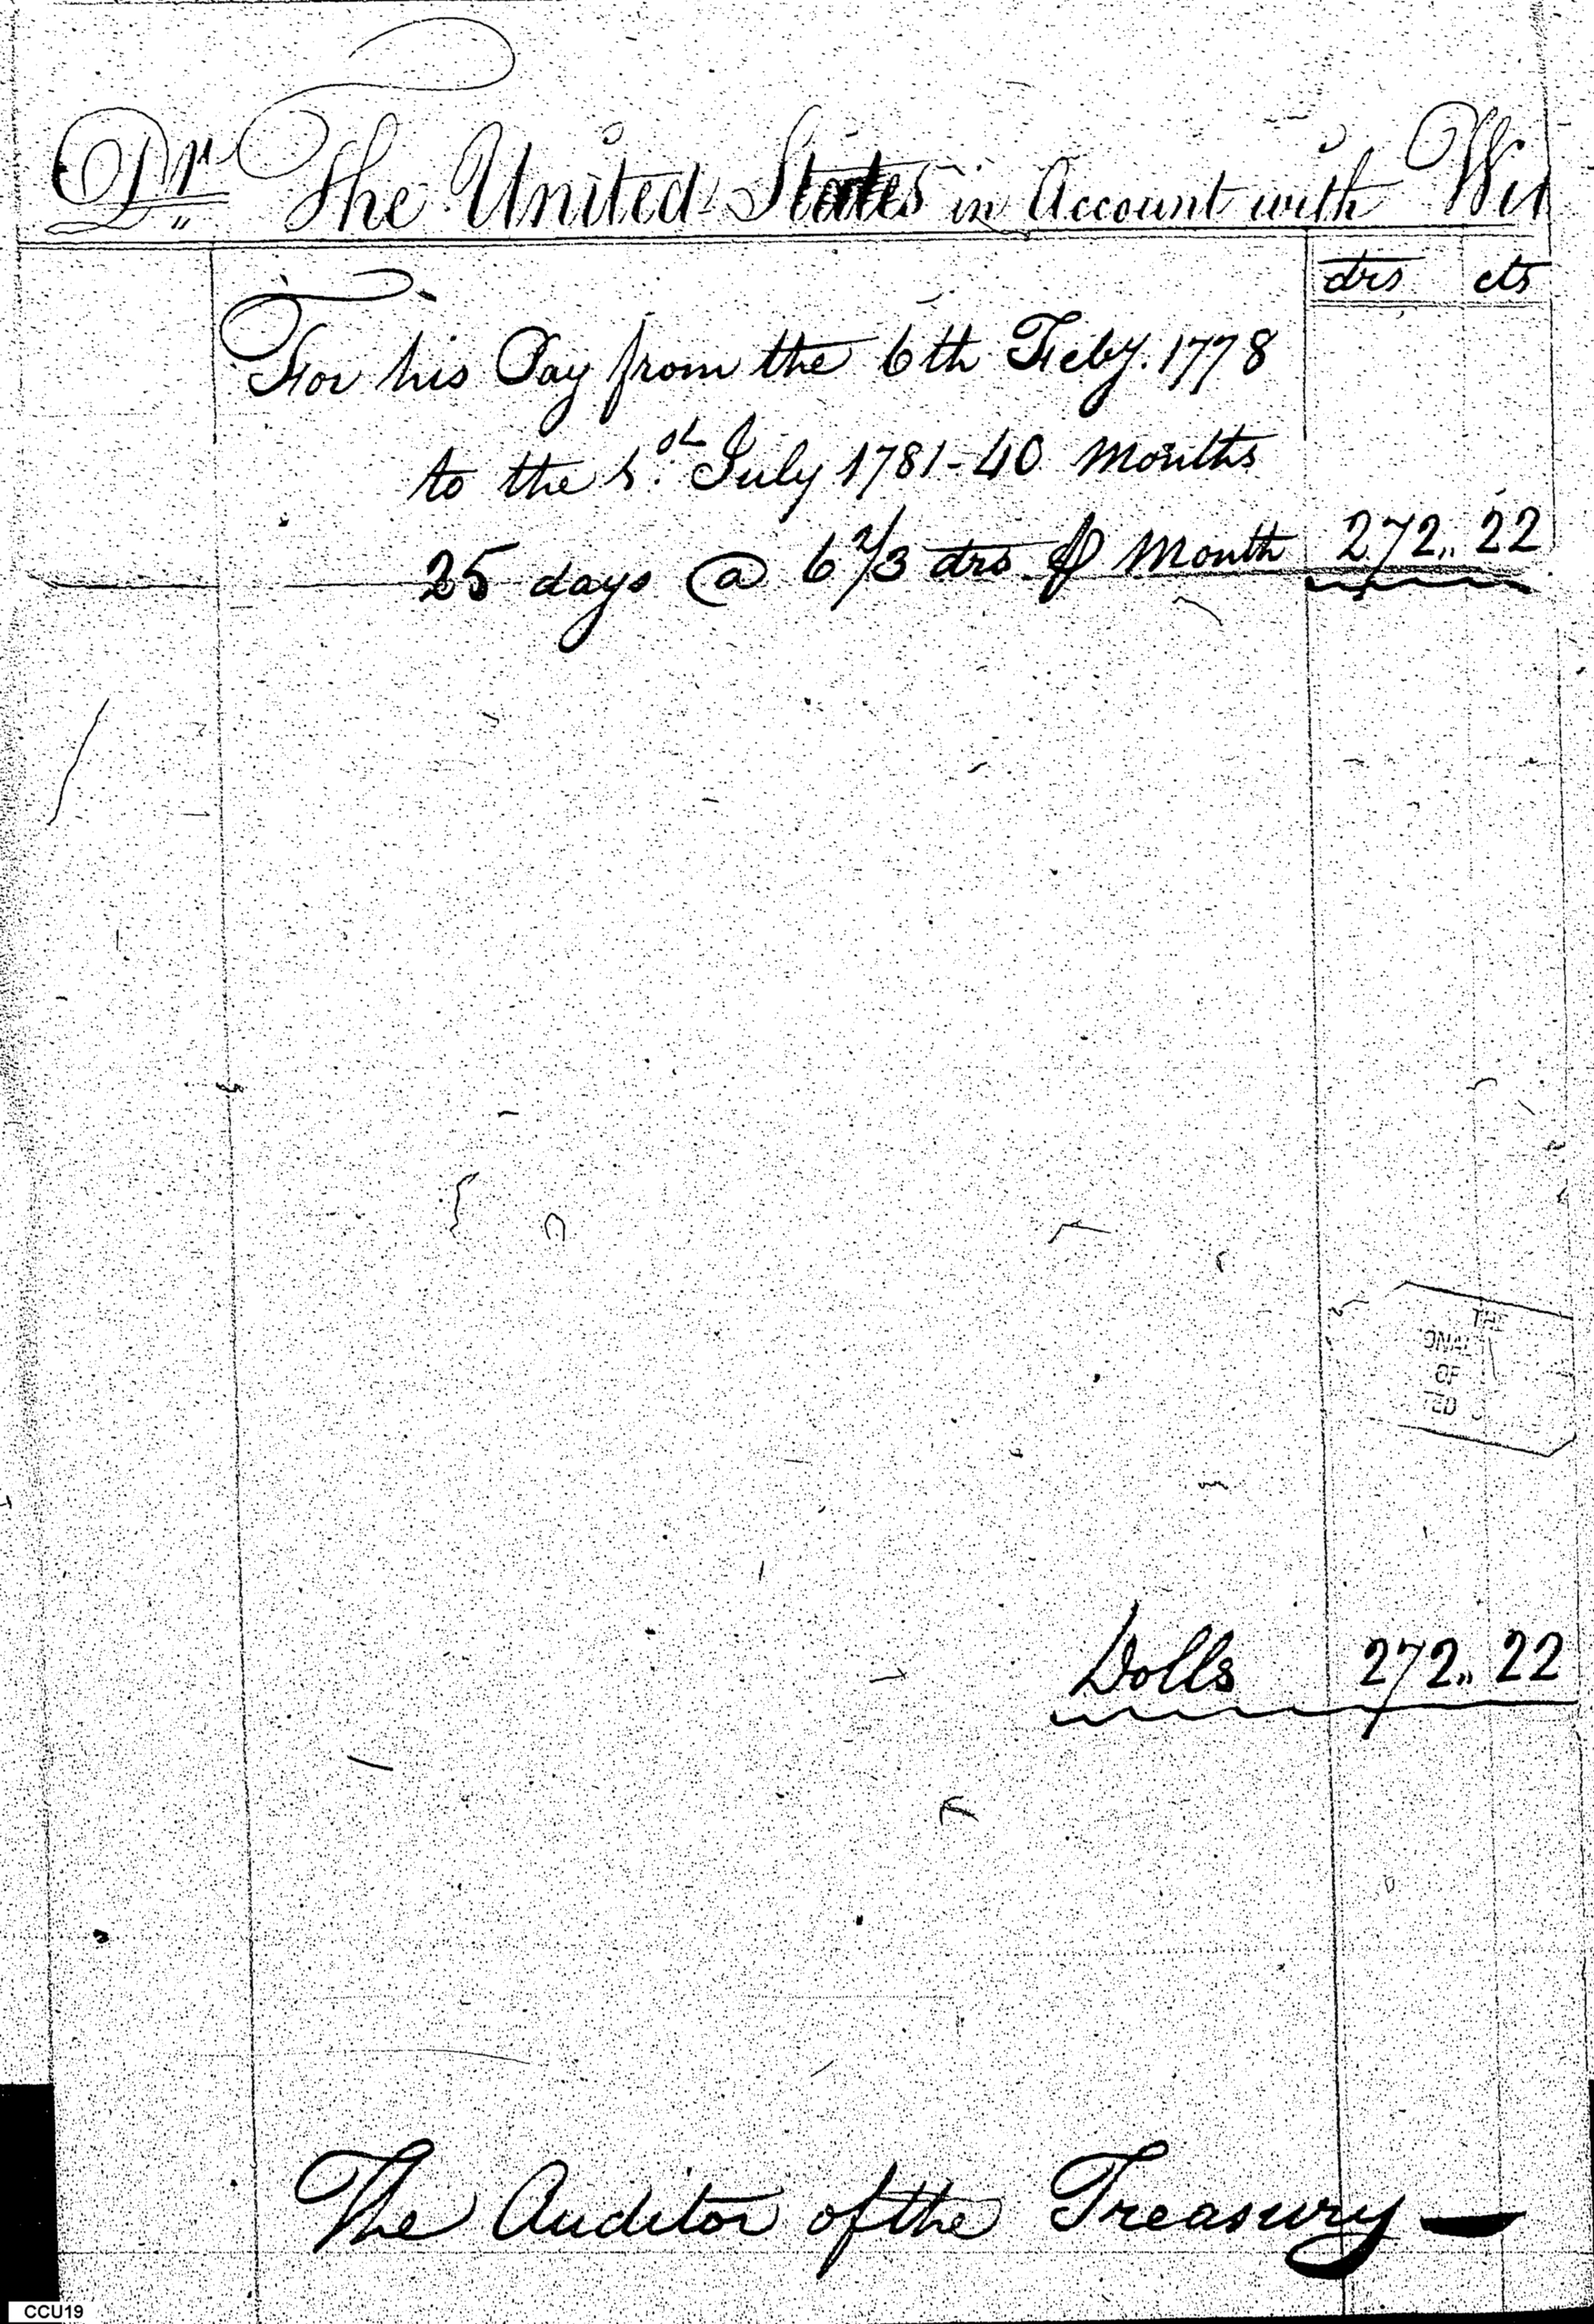 Dr. The United States in Account with Wil
drs cts
For his Pay from the 6th Feby. 1778
to the 1st. July 1781 - 40 Months
25 days @ 6 2/3 drs ⅌ Month 272.. 22
THE
ONAL
OF
TED
Dolls 272.. 22
The Auditor of the Treasury
CCU19